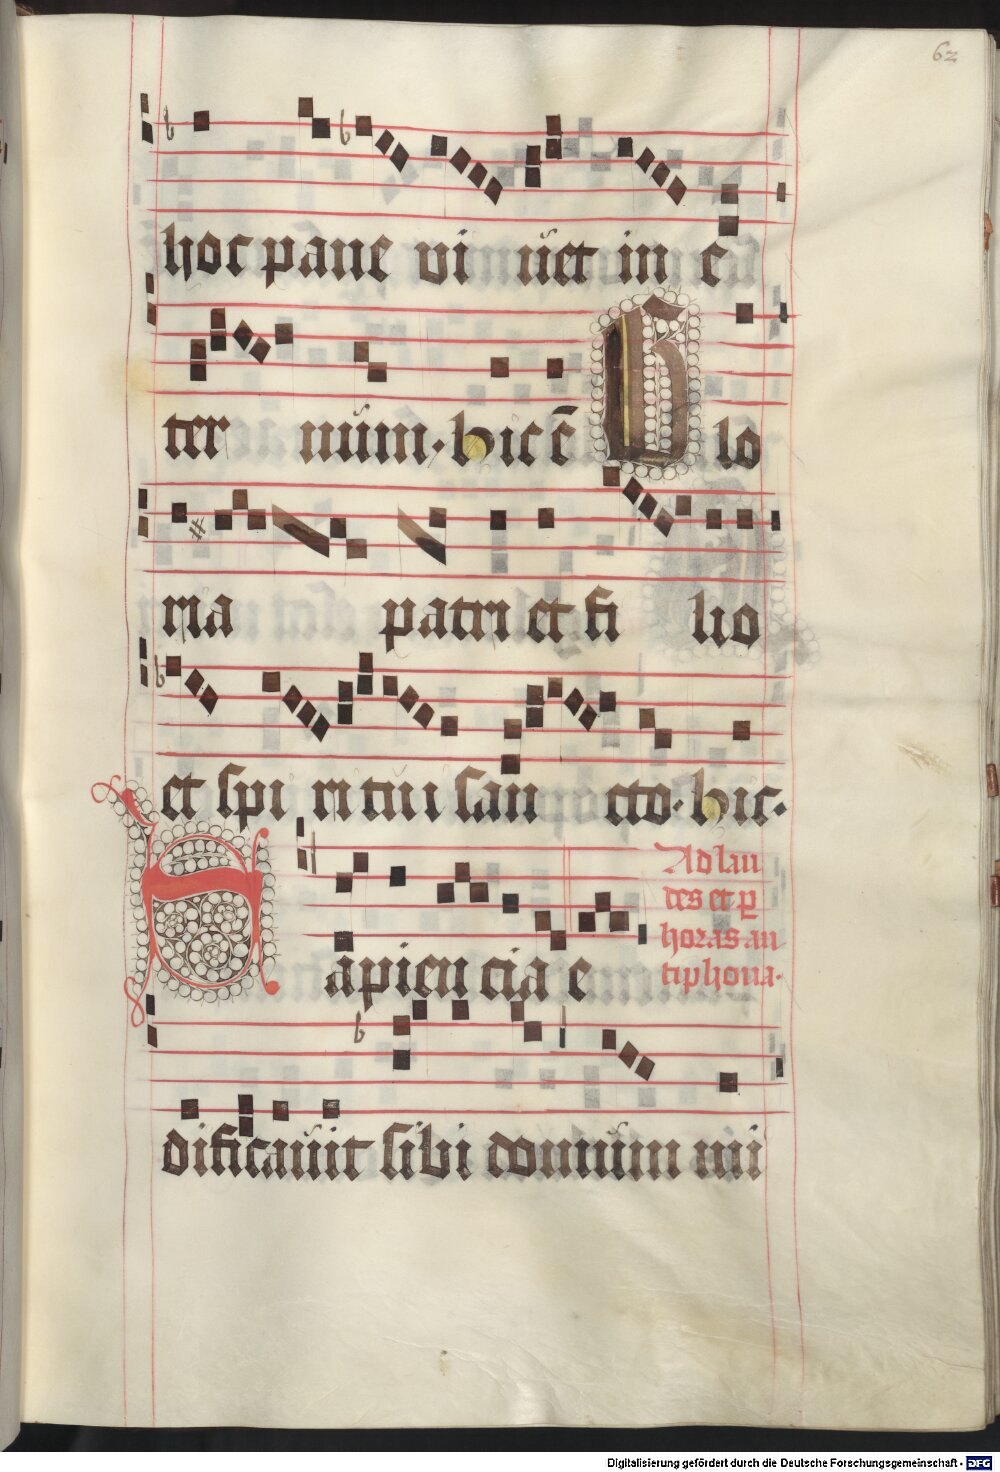 62
hoc pane vi uet in e
ter num. hic ē Glo
ria patri et fi lio
et spi ritui san cto. hic.
Ad lau
des et p
horas an
tiphona.
Sapiencia e
dificauit sibi domum mi
Digitalisierung gefördert durch die Deutsche Forschungsgemeinschaft - DFG